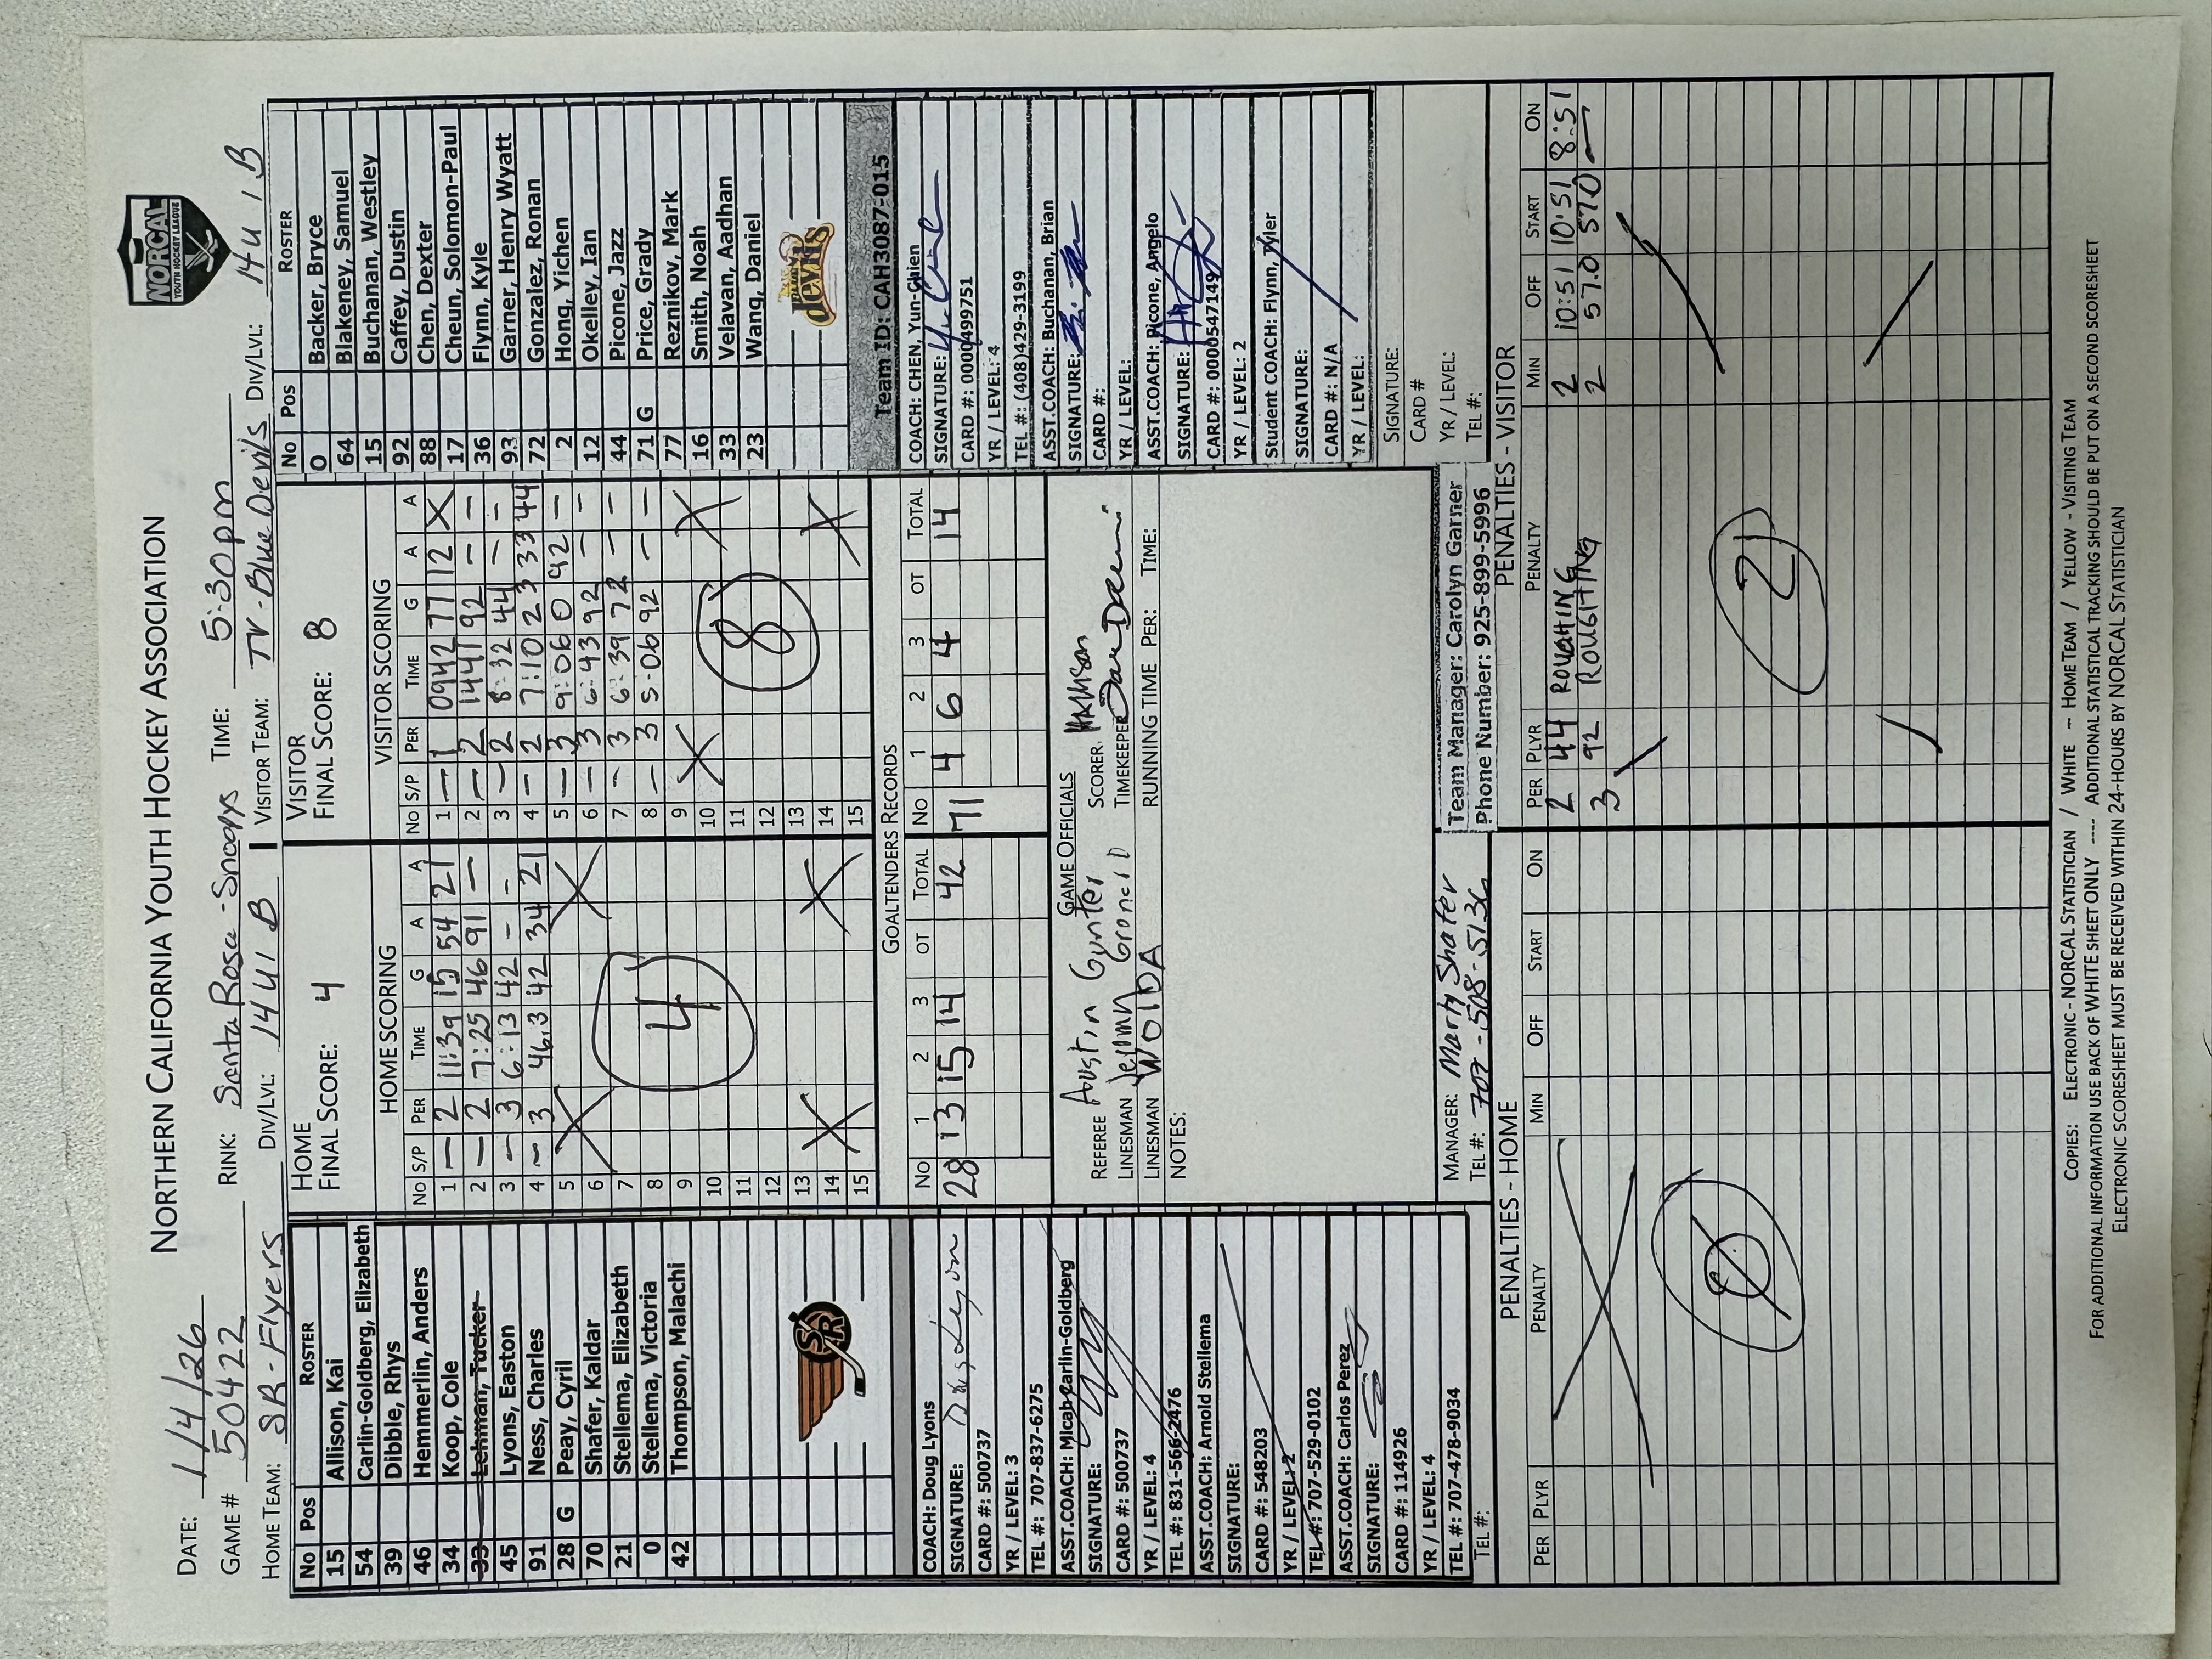 NORTHERN CALIFORNIA YOUTH HOCKEY ASSOCIATION
NORCAL
YOUTH HOCKEY LEAGUE
DATE: 1/4/26
GAME # 50422 RINK: Santa Rosa - Snoopys TIME: 5:30pm
HOME TEAM: SR-Flyers DIV/LVL: 14U B VISITOR TEAM: TV-Blue Devils DIV/LVL: 14U B
No Pos ROSTER
15 Allison, Kai
54 Carlin-Goldberg, Elizabeth
39 Dibble, Rhys
46 Hemmerlin, Anders
34 Koop, Cole
33 Lehman, Tucker
45 Lyons, Easton
91 Ness, Charles
28 G Peay, Cyril
70 Shafer, Kaldar
21 Stellema, Elizabeth
0 Stellema, Victoria
42 Thompson, Malachi
SR
COACH: Doug Lyons
SIGNATURE: Doug Lyons
CARD #: 500737
YR / LEVEL: 3
TEL #: 707-837-6275
ASST.COACH: Micah Carlin-Goldberg
SIGNATURE:
CARD #: 500737
YR / LEVEL: 4
TEL #: 831-566-2476
ASST.COACH: Arnold Stellema
SIGNATURE:
CARD #: 548203
YR / LEVEL: 2
TEL #: 707-529-0102
ASST.COACH: Carlos Perez
SIGNATURE:
CARD #: 114926
YR / LEVEL: 4
TEL #: 707-478-9034
TEL #:
HOME
FINAL SCORE: 4
HOME SCORING
NO S/P PER TIME G A A
1 — 2 11:39 15 54 21
2 — 2 7:25 46 91 —
3 - 3 6:13 42 - -
4 ~ 3 46.3 42 34 21
5
6
7
8
9
10
11
12
13
14
15
4
VISITOR
FINAL SCORE: 8
VISITOR SCORING
NO S/P PER TIME G A A
1 — 1 0942 77 12 X
2 — 2 1441 92 - -
3 — 2 8:32 44 - -
4 - 2 7:10 23 33 44
5 — 3 9:06 0 92 -
6 — 3 6:43 92 - -
7 - 3 6:39 72 - -
8 — 3 5:06 92 - -
9
10
11
12
13
14
15
8
GOALTENDERS RECORDS
NO 1 2 3 OT TOTAL NO 1 2 3 OT TOTAL
28 13 15 14 42 71 4 6 4 14
GAME OFFICIALS
REFEREE Austin Gunter SCORER
LINESMAN TIMEKEEPER
LINESMAN WOIDA RUNNING TIME PER: TIME:
NOTES:
MANAGER: Marty Shafer
TEL #: 707-508-5136
Team Manager: Carolyn Garner
Phone Number: 925-899-5996
No Pos ROSTER
0 Backer, Bryce
64 Blakeney, Samuel
15 Buchanan, Westley
92 Caffey, Dustin
88 Chen, Dexter
17 Cheun, Solomon-Paul
36 Flynn, Kyle
93 Garner, Henry Wyatt
72 Gonzalez, Ronan
2 Hong, Yichen
12 Okelley, Ian
44 Picone, Jazz
71 G Price, Grady
77 Reznikov, Mark
16 Smith, Noah
33 Velavan, Aadhan
23 Wang, Daniel
devils
Team ID: CAH3087-015
COACH: CHEN, Yun-Chien
SIGNATURE:
CARD #: 0000499751
YR / LEVEL: 4
TEL #: (408)429-3199
ASST.COACH: Buchanan, Brian
SIGNATURE:
CARD #:
YR / LEVEL:
ASST.COACH: Picone, Angelo
SIGNATURE:
CARD #: 0000547149
YR / LEVEL: 2
Student COACH: Flynn, Tyler
SIGNATURE:
CARD #: N/A
YR / LEVEL:
SIGNATURE:
CARD #
YR / LEVEL:
TEL #:
PENALTIES - HOME
PER PLYR PENALTY MIN OFF START ON
PENALTIES - VISITOR
PER PLYR PENALTY MIN OFF START ON
2 44 ROUGHING 2 10:51 10:51 8:51
3 92 ROUGHING 2 57.0 57.0 —
2
COPIES: ELECTRONIC - NORCAL STATISTICIAN / WHITE -- HOME TEAM / YELLOW - VISITING TEAM
FOR ADDITIONAL INFORMATION USE BACK OF WHITE SHEET ONLY ---- ADDITIONAL STATISTICAL TRACKING SHOULD BE PUT ON A SECOND SCORESHEET
ELECTRONIC SCORESHEET MUST BE RECEIVED WITHIN 24-HOURS BY NORCAL STATISTICIAN